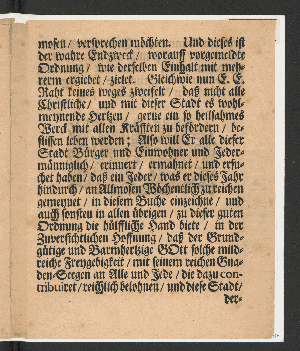 mosen / versprechen möchten. Und dieses ist
der wahre Endzweck / worauff vorgemeldte
Ordnung / wie derselben Einhalt mit meh-
rerm ergiebet / zielet. Gleichwie nun E. E.
Raht keines weges zweifelt / daß nicht alle
Christliche / und mit dieser Stadt es wohl-
meynende Hertzen / gerne ein so heilsahmes
Werck mit allen Kräfften zu befördern / be-
flissen leben werden; Also will Er alle dieser
Stadt Bürger und Einwohner und Jeder-
männiglich / erinnert / ermahnet / und ersu-
chet haben / daß ein Jeder / was er dieses Jahr
hindurch / an Allmosen Wöchentlich zu reichen
gemeynet / in diesem Buche einzeichne / und
auch sonsten in allen übrigen / zu dieser guten
Ordnung die hülffliche Hand biete / in der
Zuversichtlichen Hoffnung / daß der Grund-
gütige und Barmhertzige GOtt solche mild-
reiche Freygebigkeit / mit seinem reichen Gna-
den-Seegen an Alle und Jede / die dazu con-
tribuiret / reichlich belohnen / und diese Stadt /
der-